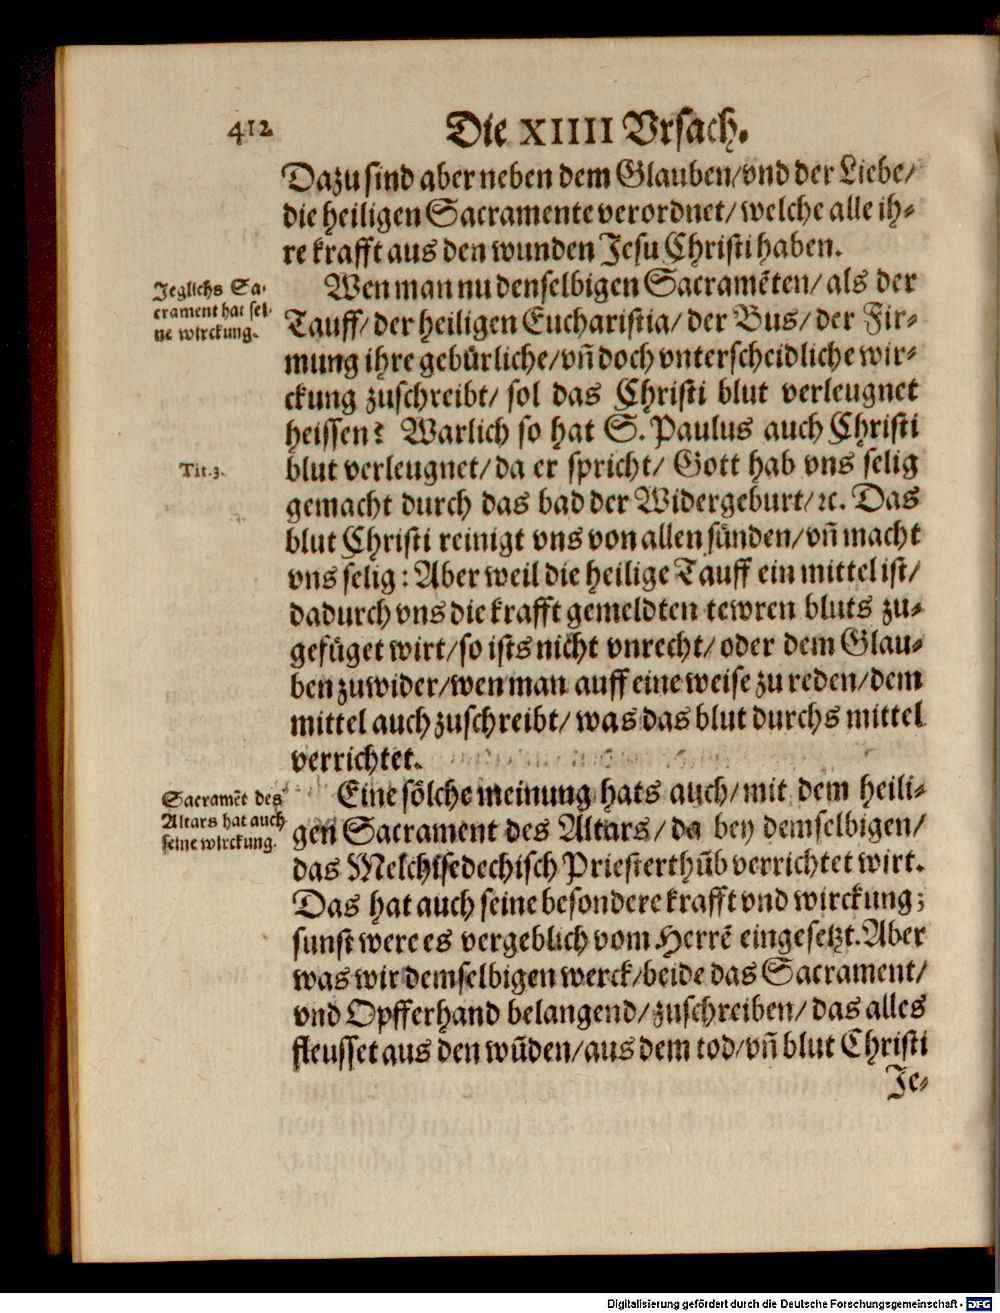 412
Die XIIII Vrsach.
Dazu sind aber neben dem Glauben/vnd der Liebe/
die heiligen Sacramente verordnet/welche alle ih⸗
re krafft aus den wunden Jesu Christi haben.
Jeglichs Sa⸗
crament hat sei⸗
ne wirckung.
Wen man nu denselbigen Sacramẽten/ als der
Tauff/ der heiligen Eucharistia/ der Bus/ der Fir⸗
mung ihre gebürliche/vñ doch vnterscheidliche wir⸗
ckung zuschreibt/ sol das Christi blut verleugnet
heissen? Warlich so hat S. Paulus auch Christi
Tit.3.
blut verleugnet/da er spricht/ Gott hab vns selig
gemacht durch das bad der Widergeburt/ꝛc. Das
blut Christi reinigt vns von allen sünden/vñ macht
vns selig: Aber weil die heilige Tauff ein mittel ist/
dadurch vns die krafft gemeldten tewren bluts zu⸗
gefüget wirt/so ists nicht vnrecht/oder dem Glau⸗
ben zuwider/wen man auff eine weise zu reden/dem
mittel auch zuschreibt/ was das blut durchs mittel
verrichtet.
Sacramẽt des
Altars hat auch
seine wirckung.
Eine sölche meinung hats auch/mit dem heili⸗
gen Sacrament des Altars/da bey demselbigen/
das Melchisedechisch Priesterthũb verrichtet wirt.
Das hat auch seine besondere krafft vnd wirckung;
sunst were es vergeblich vom Herrẽ eingesetzt. Aber
was wir demselbigen werck/beide das Sacrament/
vnd Opfferhand belangend/zuschreiben/ das alles
fleusset aus den wũden/aus dem tod/vñ blut Christi
Je⸗
Digitalisierung gefördert durch die Deutsche Forschungsgemeinschaft - DFG